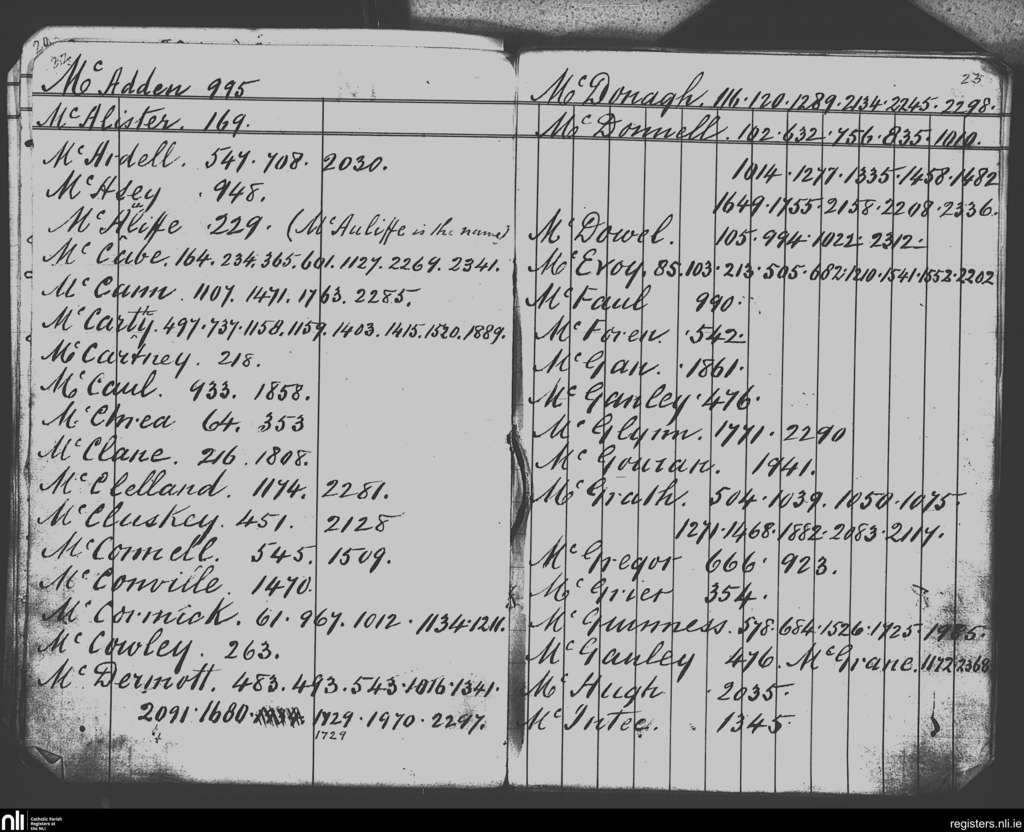 22
Mc Adden 995
Mc Alister. 169.
Mc Ardell. 547. 708. 2030.
Mc Asey . 948.
Mc Aliffe . 229. (McAuliffe is the name)
Mc Cabe. 164. 234. 365. 601. 1127. 2269. 2341.
Mc Cann. 1107. 1471. 1763. 2285.
Mc Carthy. 497. 737. 1158. 1159. 1403. 1415. 1520. 1889.
Mc Cartney. 218.
Mc Caul. 933. 1858.
Mc Crea 64. 353
Mc Clane. 216. 1808.
Mc Clelland. 1174. 2281.
Mc Cluskey. 451. 2128
Mc Connell. 545. 1509.
Mc Conville. 1470.
Mc Cormick. 61. 967. 1012. 1134. 1211.
Mc Cowley. 263.
Mc Dermott. 483. 493. 543. 1016. 1341.
2091. 1680. 1729. 1970. 2297.
1729
23
Mc Donagh. 116. 120. 1289. 2134. 2245. 2298.
Mc Donnell. 102. 632. 756. 835. 1010.
1014. 1277. 1335. 1458. 1482
1649. 1755. 2158. 2208. 2336.
Mc Dowel. 105. 994. 1022. 2312.
Mc Evoy. 85. 103. 213. 505. 682. 1210. 1541. 1552. 2202
Mc Faul 990.
Mc Foren. 542.
Mc Gan. 1861.
Mc Ganley. 476.
Mc Glynn. 1771. 2290
Mc Gouran. 1941.
Mc Grath. 504. 1039. 1050. 1075.
1271. 1468. 1882. 2083. 2117.
Mc Gregor 666. 923.
Mc Grier 354.
Mc Guinness. 578. 684. 1526. 1725.
Mc Ganley 476. McGrane. 1172. 2368
Mc Hugh 2035.
Mc Intee. 1345.
nli Catholic Parish Registers at the NLI
registers.nli.ie